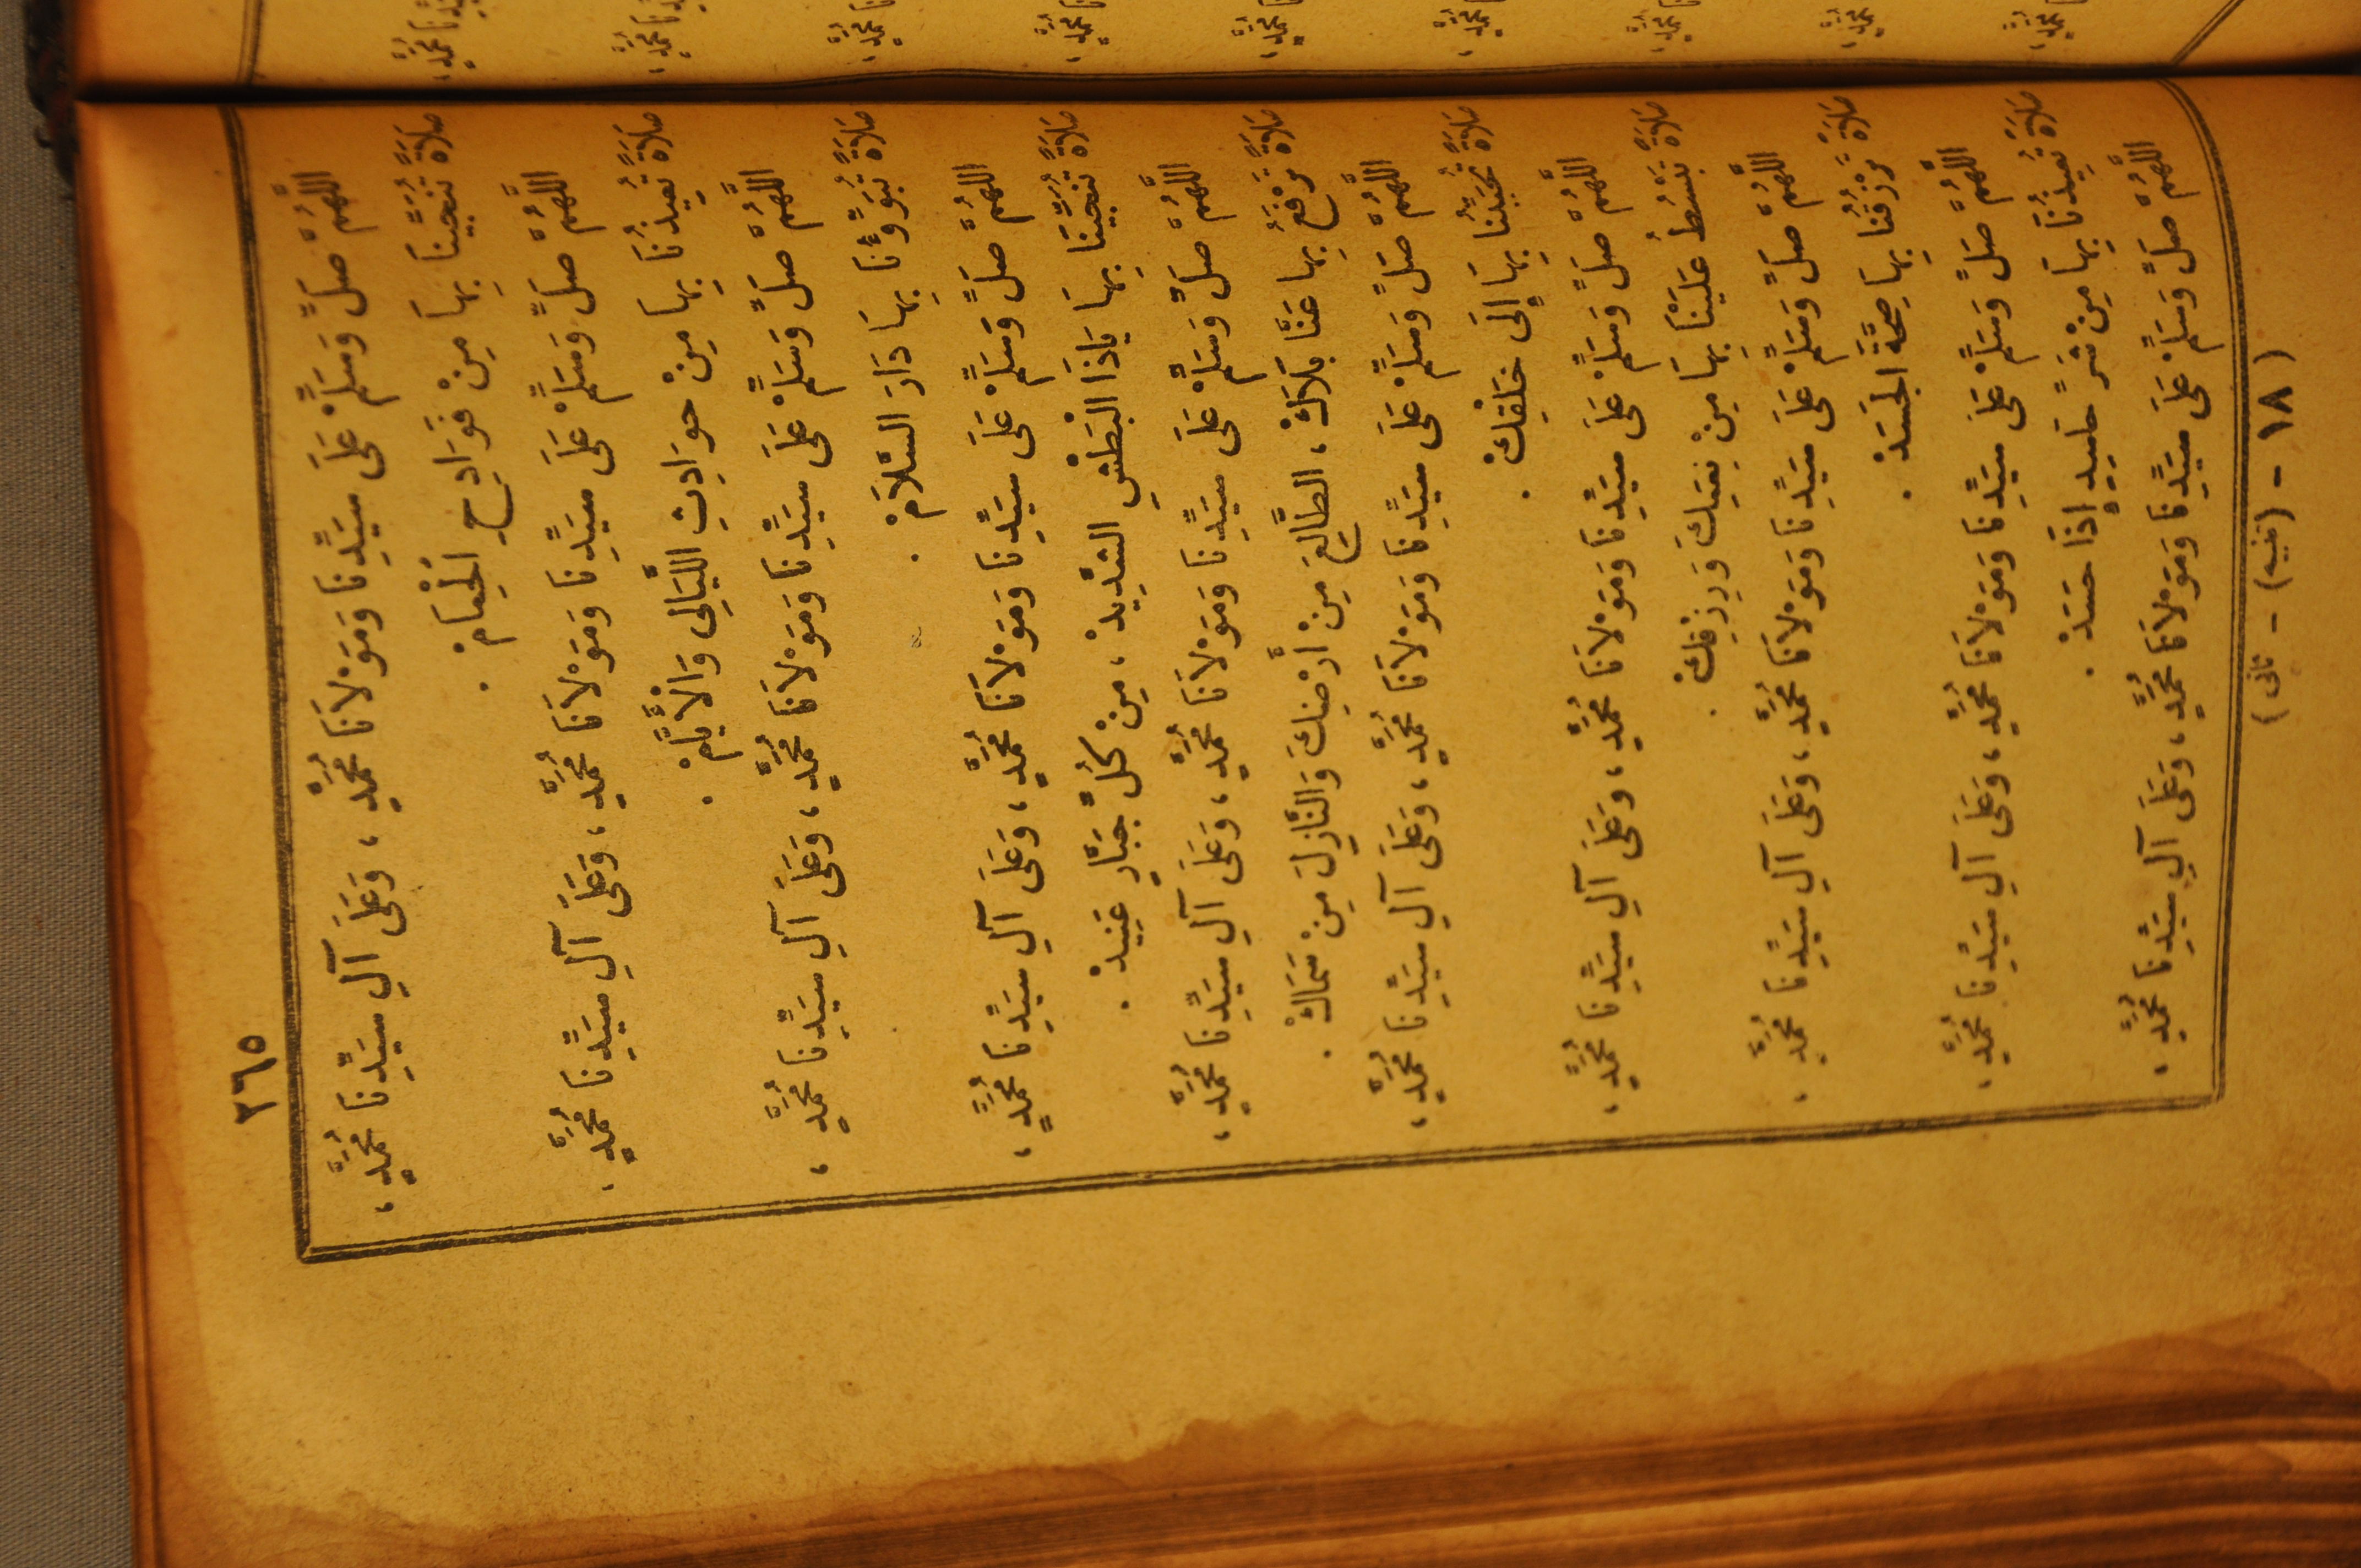 ٢٦٥
اللَّهُمَّ صَلِّ وَسَلِّمْ عَلَى سَيِّدِنَا وَمَوْلَانَا مُحَمَّدٍ، وَعَلَى آلِ سَيِّدِنَا مُحَمَّدٍ،
صَلَاةً تُنَجِّينَا بِهَا مِنْ فَوَادِحِ الْحِمَامْ.
اللَّهُمَّ صَلِّ وَسَلِّمْ عَلَى سَيِّدِنَا وَمَوْلَانَا مُحَمَّدٍ، وَعَلَى آلِ سَيِّدِنَا مُحَمَّدٍ.
صَلَاةً تُعِيذُنَا بِهَا مِنْ حَوَادِثِ اللَّيَالِى وَالْأَيَّامْ.
اللَّهُمَّ صَلِّ وَسَلِّمْ عَلَى سَيِّدِنَا وَمَوْلَانَا مُحَمَّدٍ، وَعَلَى آلِ سَيِّدِنَا مُحَمَّدٍ،
صَلَاةً تُبَوِّؤُنَا بِهَا دَارَ السَّلَامْ.
اللَّهُمَّ صَلِّ وَسَلِّمْ عَلَى سَيِّدِنَا وَمَوْلَانَا مُحَمَّدٍ، وَعَلَى آلِ سَيِّدِنَا مُحَمَّدٍ،
صَلَاةً تُنَجِّينَا بِهَا يَاذَا الْبَطْشِ الشَّدِيدْ، مِنْ كُلِّ جَبَّارٍ عَنِيدْ.
اللَّهُمَّ صَلِّ وَسَلِّمْ عَلَى سَيِّدِنَا وَمَوْلَانَا مُحَمَّدٍ، وَعَلَى آلِ سَيِّدِنَا مُحَمَّدٍ،
صَلَاةً تَرْفَعُ بِهَا عَنَّا بَلَاكْ، الطَّالِعَ مِنْ أَرْضِكَ وَالنَّازِلَ مِنْ سَمَاكْ.
اللَّهُمَّ صَلِّ وَسَلِّمْ عَلَى سَيِّدِنَا وَمَوْلَانَا مُحَمَّدٍ، وَعَلَى آلِ سَيِّدِنَا مُحَمَّدٍ،
صَلَاةً تُحَبِّبُنَا بِهَا إِلَى خَلْقِكْ.
اللَّهُمَّ صَلِّ وَسَلِّمْ عَلَى سَيِّدِنَا وَمَوْلَانَا مُحَمَّدٍ، وَعَلَى آلِ سَيِّدِنَا مُحَمَّدٍ،
صَلَاةً تَبْسُطُ عَلَيْنَا بِهَا مِنْ نِعَمِكَ وَرِزْقِكْ.
اللَّهُمَّ صَلِّ وَسَلِّمْ عَلَى سَيِّدِنَا وَمَوْلَانَا مُحَمَّدٍ، وَعَلَى آلِ سَيِّدِنَا مُحَمَّدٍ،
صَلَاةً تَرْزُقُنَا بِهَا صِحَّةَ الْجَسَدْ.
اللَّهُمَّ صَلِّ وَسَلِّمْ عَلَى سَيِّدِنَا وَمَوْلَانَا مُحَمَّدٍ، وَعَلَى آلِ سَيِّدِنَا مُحَمَّدٍ،
صَلَاةً تُعِيذُنَا بِهَا مِنْ شَرِّ حَاسِدٍ إِذَا حَسَدْ.
اللَّهُمَّ صَلِّ وَسَلِّمْ عَلَى سَيِّدِنَا وَمَوْلَانَا مُحَمَّدٍ، وَعَلَى آلِ سَيِّدِنَا مُحَمَّدٍ،
(١٨ - (تنبيه) - ثانى)